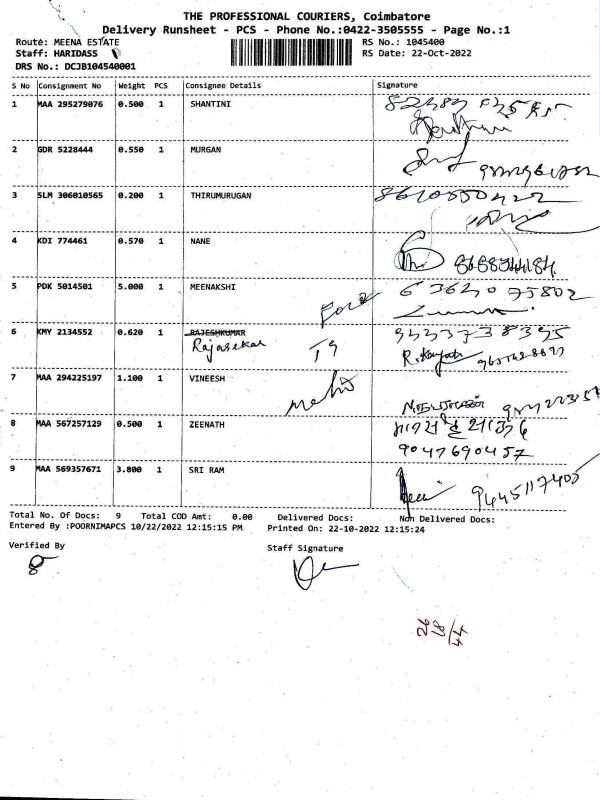 THE PROFESSIONAL COURIERS, Coimbatore
Delivery Runsheet - PCS - Phone No.:0422-3505555 - Page No.:1
Route: MEENA ESTATE RS No.: 1045400
Staff: HARIDASS RS Date: 22-Oct-2022
DRS No.: DCJB104540001
S No Consignment No Weight PCS Consignee Details Signature
1 MAA 295279076 0.500 1 SHANTINI
2 GDR 5228444 0.550 1 MURGAN
3 SLM 306010565 0.200 1 THIRUMURUGAN 8610550422
4 KDI 774461 0.570 1 NANE
5 PDK 5014501 5.000 1 MEENAKSHI 6362075802
6 KMY 2134552 0.620 1 RAJESHKUMAR
Rajasekar
7 MAA 294225197 1.100 1 VINEESH
8 MAA 567257129 0.500 1 ZEENATH
9047690457
9 MAA 569357671 3.800 1 SRI RAM 9445117405
Total No. Of Docs: 9 Total COD Amt: 0.00 Delivered Docs: Non Delivered Docs:
Entered By :POORNIMAPCS 10/22/2022 12:15:15 PM Printed On: 22-10-2022 12:15:24
Verified By Staff Signature